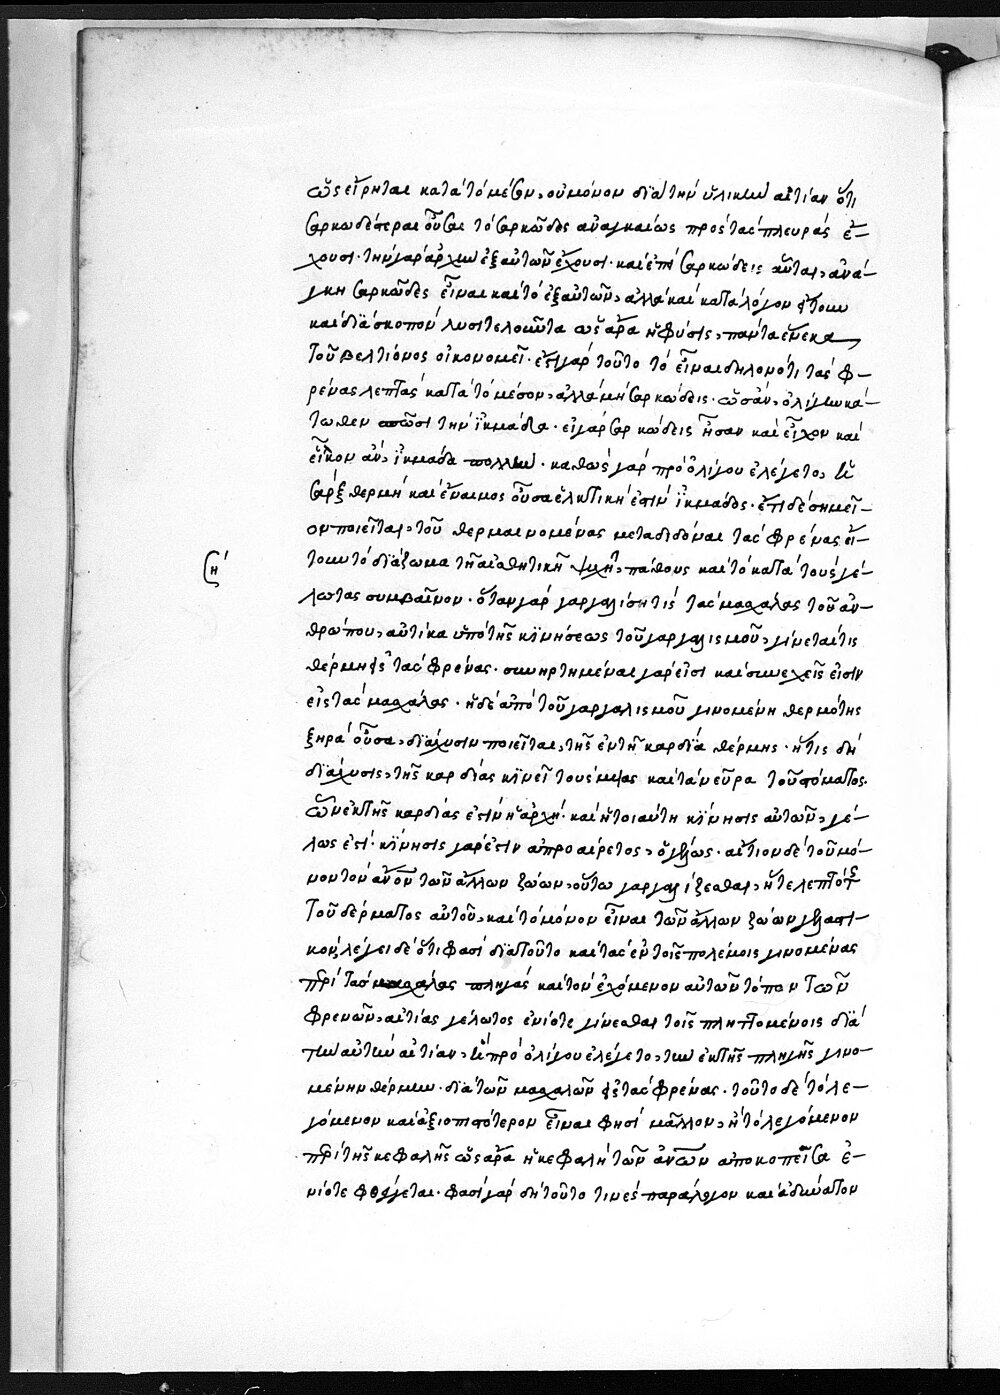 ὡς εἴρηται κατὰ τὸ μέσον, οὐ μόνον διὰ τὴν ὑλικὴν αἰτίαν ὅτι
σαρκωδέστεραι οὖσαι τὸ σαρκῶδες ἀναγκαίως πρὸς τὰς πλευρὰς ἔ-
χουσι· τὴν γὰρ ἀρχὴν ἐξ αὐτῶν ἔχουσι· καὶ ἐπεὶ σαρκώδεις αὗται, ἀνά-
γκη σαρκῶδες εἶναι καὶ τὸ ἐξ αὐτῶν, ἀλλὰ καὶ κατὰ λόγον ἤτοι
καὶ διὰ σκοπὸν λυσιτελοῦντα ὡς ἄρα ἡ φύσις, πάντα ἕνεκα
τοῦ βελτίονος οἰκονομεῖ· ἔστι γὰρ τοῦτο τὸ εἶναι δηλονότι τὰς φ-
ρένας λεπτὰς κατὰ τὸ μέσον, ἀλλὰ μὴ σαρκώδεις· ὡς ἂν, ὀλίγην κά-
τωθεν σπῶσι τὴν ἰκμάδα· εἰ γὰρ σαρκώδεις ἦσαν καὶ εἶχον καὶ
εἷλκον ἂν, ἰκμάδα πολλὴν· καθὼς γὰρ πρὸ ὀλίγου ἐλέγετο, ἡ
σὰρξ θερμὴ καὶ ἔναιμος οὖσα ἑλκτική ἐστιν ἰκμάδος· ἔτι δὲ σημεῖ-
ον ποιεῖται, τοῦ θερμαινομένας μεταδιδόναι τὰς φρένας εἴ-
τουν τὸ διάζωμα τῆ αἰσθητικῆ ψυχῆ, πάθους καὶ τὸ κατὰ τοὺς γέ-
ση΄
λωτας συμβαῖνον· ὅταν γὰρ γαργαλίση τὶς τὰς μασχάλας τοῦ ἀν-
θρώπου, αὐτίκα ὑπὸ τῆς κινήσεως τοῦ γαργαλισμοῦ, γίνεταί τις
θέρμη εἰς τὰς φρένας· συνηρτημέναι γὰρ εἰσὶ καὶ συνεχεῖς εἰσὶν
εἰς τὰς μασχάλας· ἡ δὲ ἀπὸ τοῦ γαργαλισμοῦ γινομένη θερμότης
ξηρὰ οὖσα, διάχυσιν ποιεῖται, τῆς ἐν τῆ καρδία θέρμης· ἥτις δὴ
διάχυσις, τῆς καρδίας κινεῖ τοὺς μύας καὶ τὰ νεῦρα τοῦ στόματος·
ὧν ἐκ τῆς καρδίας ἐστὶν ἡ ἀρχή· καὶ ἡ τοιαύτη κίνησις αὐτῶν, γέ-
λως ἐστί· κίνησις γάρ ἐστιν ἀπροαίρετος, ὁ γέλως· αἴτιον δὲ τοῦ μό-
νον τὸν ἄνον τῶν ἄλλων ζώων, οὕτω γαργαλίζεσθαι, ἥ τε λεπτότης
τοῦ δέρματος αὐτοῦ, καὶ τὸ μόνον εἶναι τῶν ἄλλων ζώων γελαστι-
κόν, λέγει δὲ ὅτι φασὶ διὰ τοῦτο καὶ τὰς ἐν τοῖς πολέμοις γινομένας
περὶ τὰς μασχάλας πληγὰς καὶ τὸν ἐχόμενον αὐτῶν τόπον τῶν
φρενῶν, αἰτίας γέλωτος ἐνίοτε γίνεσθαι τοῖς πληττομένοις διὰ
τὴν αὐτὴν αἰτίαν, ἣ πρὸ ὀλίγου ἐλέγετο, τὴν ἐκ τῆς πληγῆς γινο-
μένην θέρμην· διὰ τῶν μασχαλῶν εἰς τὰς φρένας· τοῦτο δὲ τὸ λε-
γόμενον καὶ ἀξιοπιστότερον εἶναι φησὶ μᾶλλον, ἢ τὸ λεγόμενον
περὶ τῆς κεφαλῆς ὡς ἄρα ἡ κεφαλὴ τῶν ἀνων ἀποκοπεῖσα ἐ-
νίοτε φθέγγεται· φασὶ γὰρ δὴ τοῦτο τινὲς παράλογον καὶ ἀδύνατον